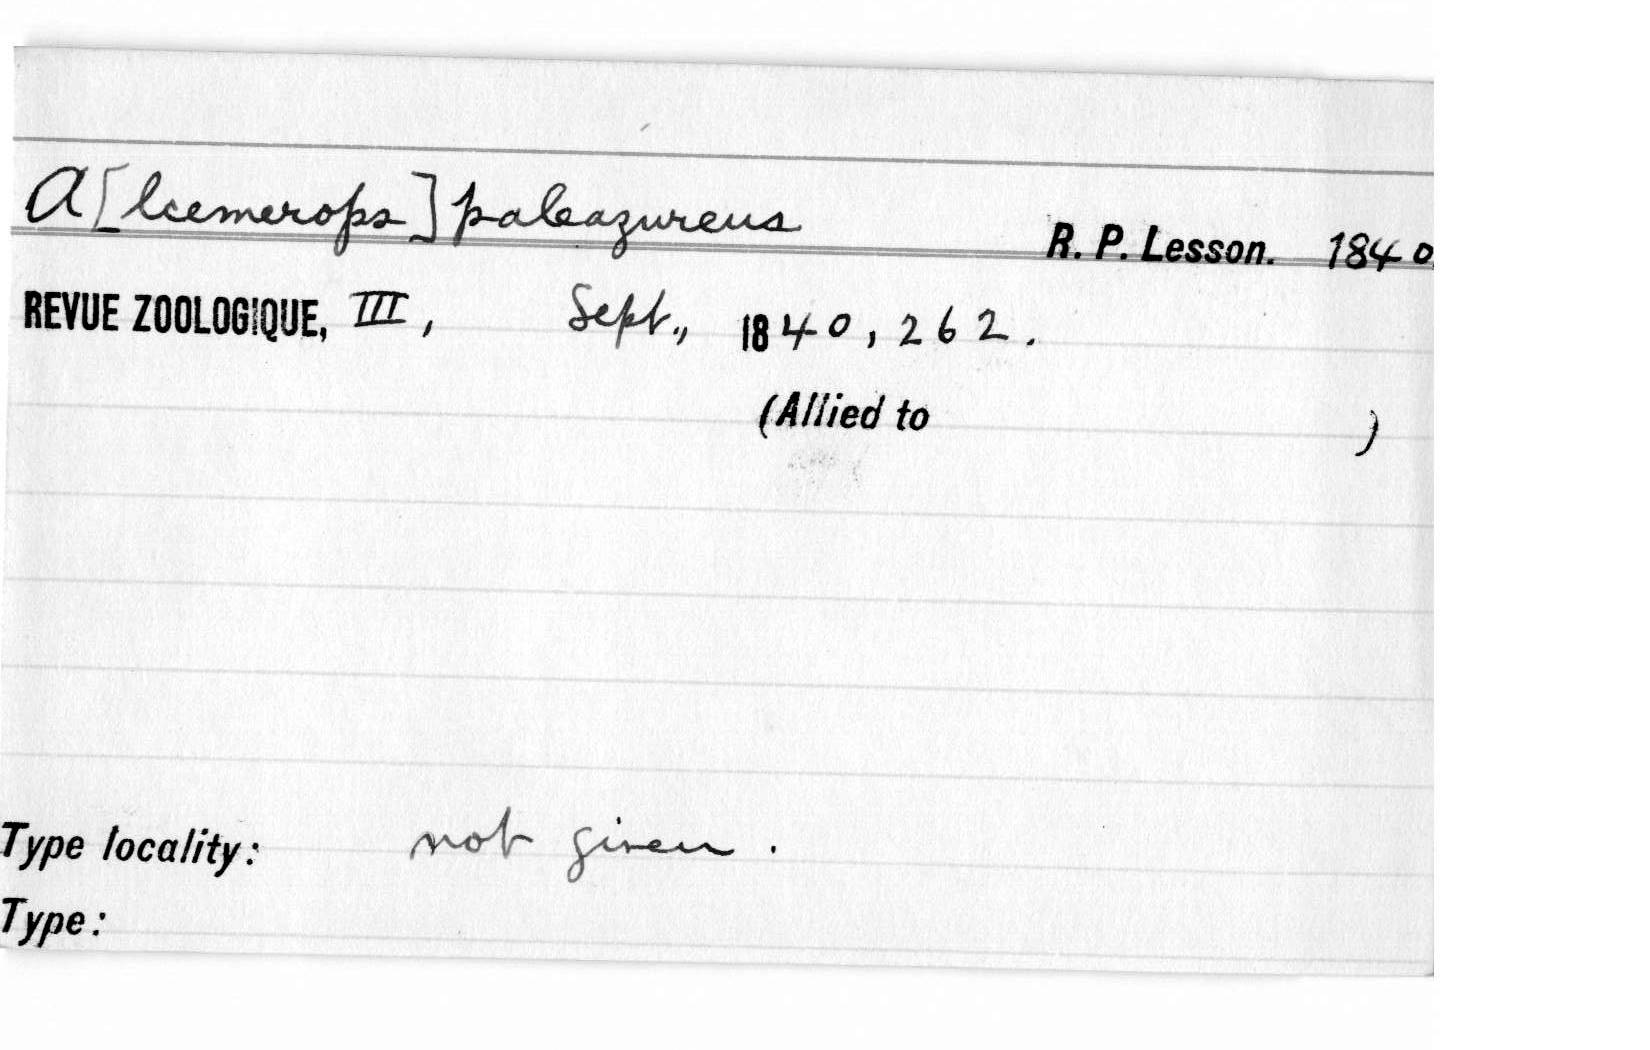 A[lcemerops] paleazureus
R. P. Lesson. 1840.
REVUE ZOOLOGIQUE, III, Sept., 1840, 262.
(Allied to )
Type locality: not given.
Type: